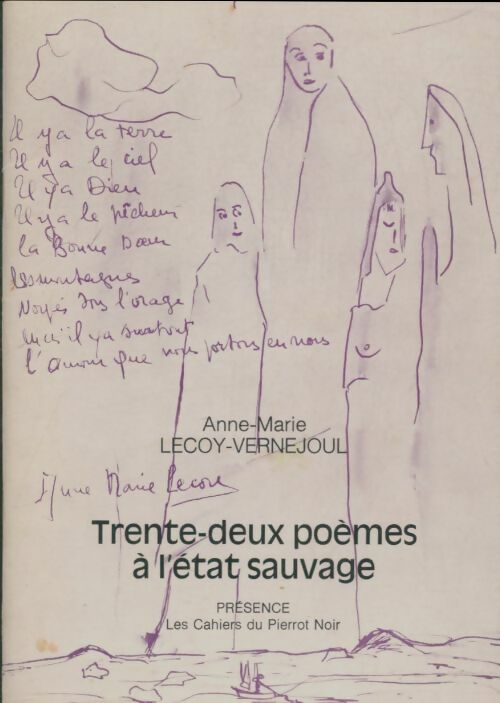 Il y a la terre
Il y a le ciel
Il y a Dieu
Il y a le pêcheur
la Bonne Dame
les montagnes
Noyés ds l'orage
mais il y a surtout
l'amour que nous portons en nous
Anne-Marie
LECOY-VERNEJOUL
Anne Marie Lecoy
Trente-deux poèmes
à l'état sauvage
PRÉSENCE
Les Cahiers du Pierrot Noir